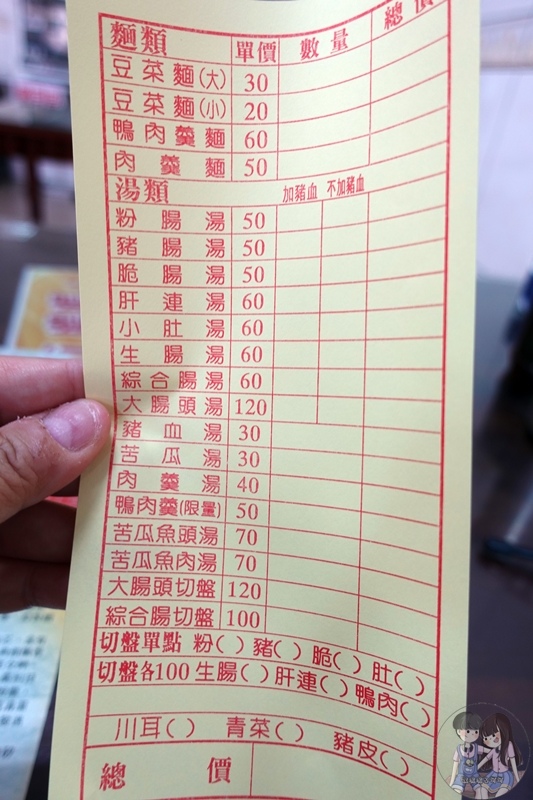 麵類 單價 數量 總價
豆菜麵(大) 30
豆菜麵(小) 20
鴨肉羹麵 60
肉羹麵 50
湯類 加豬血 不加豬血
粉腸湯 50
豬腸湯 50
脆腸湯 50
肝連湯 60
小肚湯 60
生腸湯 60
綜合腸湯 60
大腸頭湯 120
豬血湯 30
苦瓜湯 30
肉羹湯 40
鴨肉羹(限量) 50
苦瓜魚頭湯 70
苦瓜魚肉湯 70
大腸頭切盤 120
綜合腸切盤 100
切盤單點 粉( ) 豬( ) 脆( ) 肚( )
切盤各100 生腸( ) 肝連( ) 鴨肉( )
川耳( ) 青菜( ) 豬皮( )
總價